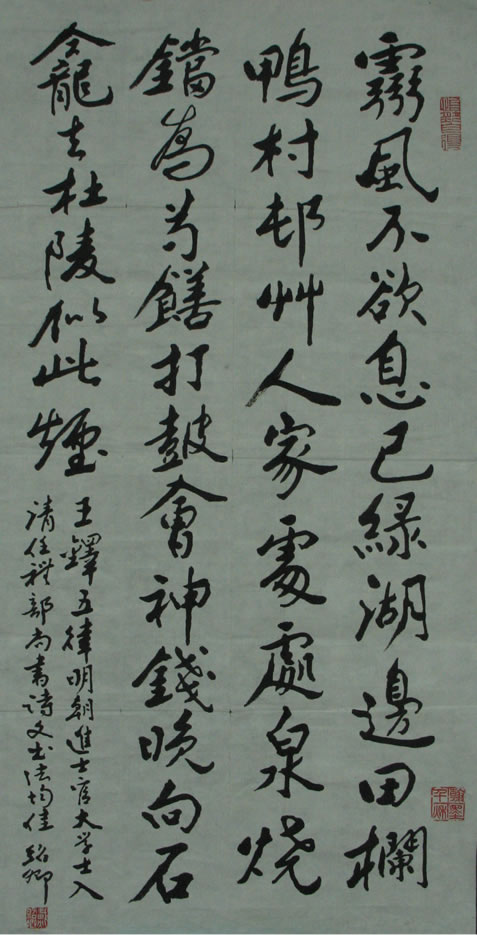 霧風不欲息已綠湖邊田欄
鴨村邨艸人家處處泉烧
鐺為饍打鼓會神錢晚向石
龕去杜陵似此煙
王鐸五律明朝進士官大学士入
清任禮部尚書詩文书法均佳 紹卿